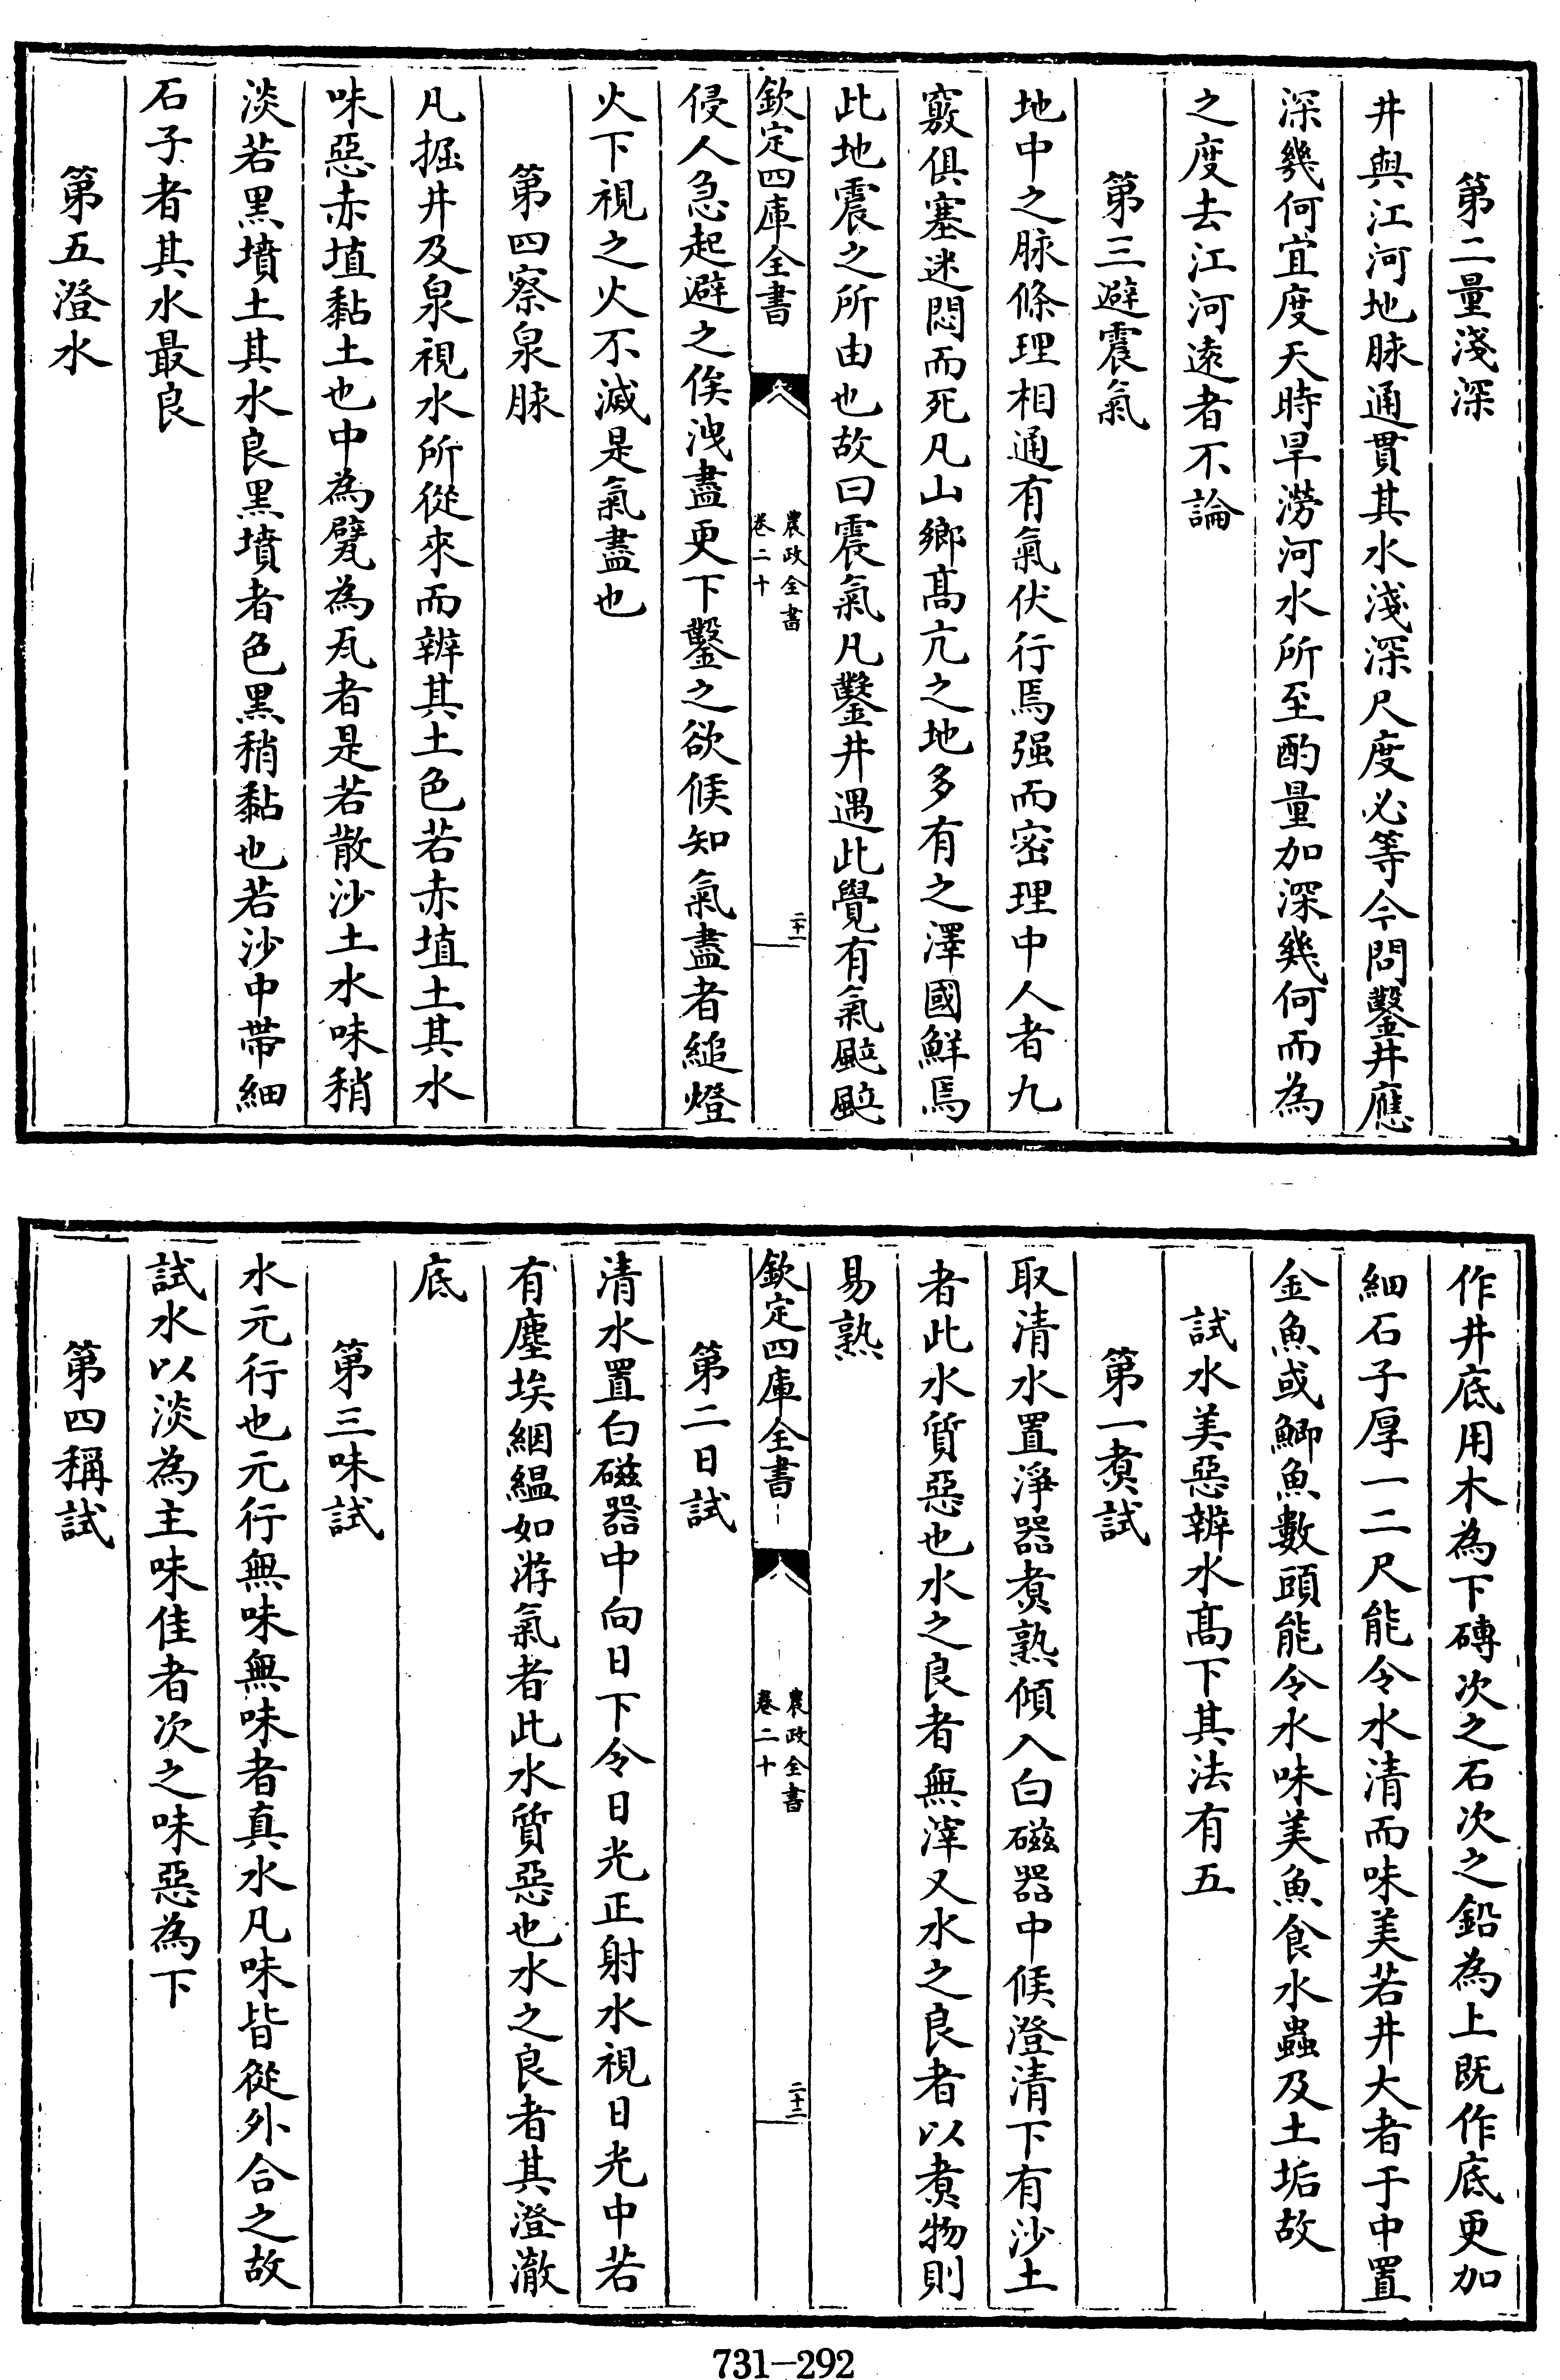 第二量淺深
井與江河地脉通貫其水淺深尺度必等今問鑿井應
深幾何宜度天時旱澇河水所至酌量加深幾何而為
之度去江河遠者不論
第三避震氣
地中之脉條理相通有氣伏行焉强而密理中人者九
竅俱塞迷悶而死凡山鄉髙亢之地多有之澤國鮮焉
此地震之所由也故曰震氣凡鑿井遇此覺有氣颭颭
欽定四庫全書
農政全書
卷二十
二十一
侵人急起避之俟洩盡更下鑿之欲候知氣盡者縋燈
火下視之火不減是氣盡也
第四察泉脉
凡掘井及泉視水所從來而辨其土色若赤埴土其水
味惡赤埴黏土也中為甓為瓦者是若散沙土水味稍
淡若黑墳土其水良黑墳者色黑稍黏也若沙中帶細
石子者其水最良
第五澄水
作井底用木為下磚次之石次之鉛為上既作底更加
細石子厚一二尺能令水清而味美若井大者于中置
金魚或鯽魚數頭能令水味美魚食水蟲及土垢故
試水美惡辨水髙下其法有五
第一煑試
取清水置淨器煑熟傾入白磁器中候澄清下有沙土
者此水質惡也水之良者無滓又水之良者以煑物則
易熟
欽定四庫全書
農政全書
卷二十
二十二
第二日試
清水置白磁器中向日下令日光正射水視日光中若
有塵埃絪緼如游氣者此水質惡也水之良者其澄澈
底
第三味試
水元行也元行無味無味者真水凡味皆從外合之故
試水以淡為主味佳者次之味惡為下
第四稱試
731-292